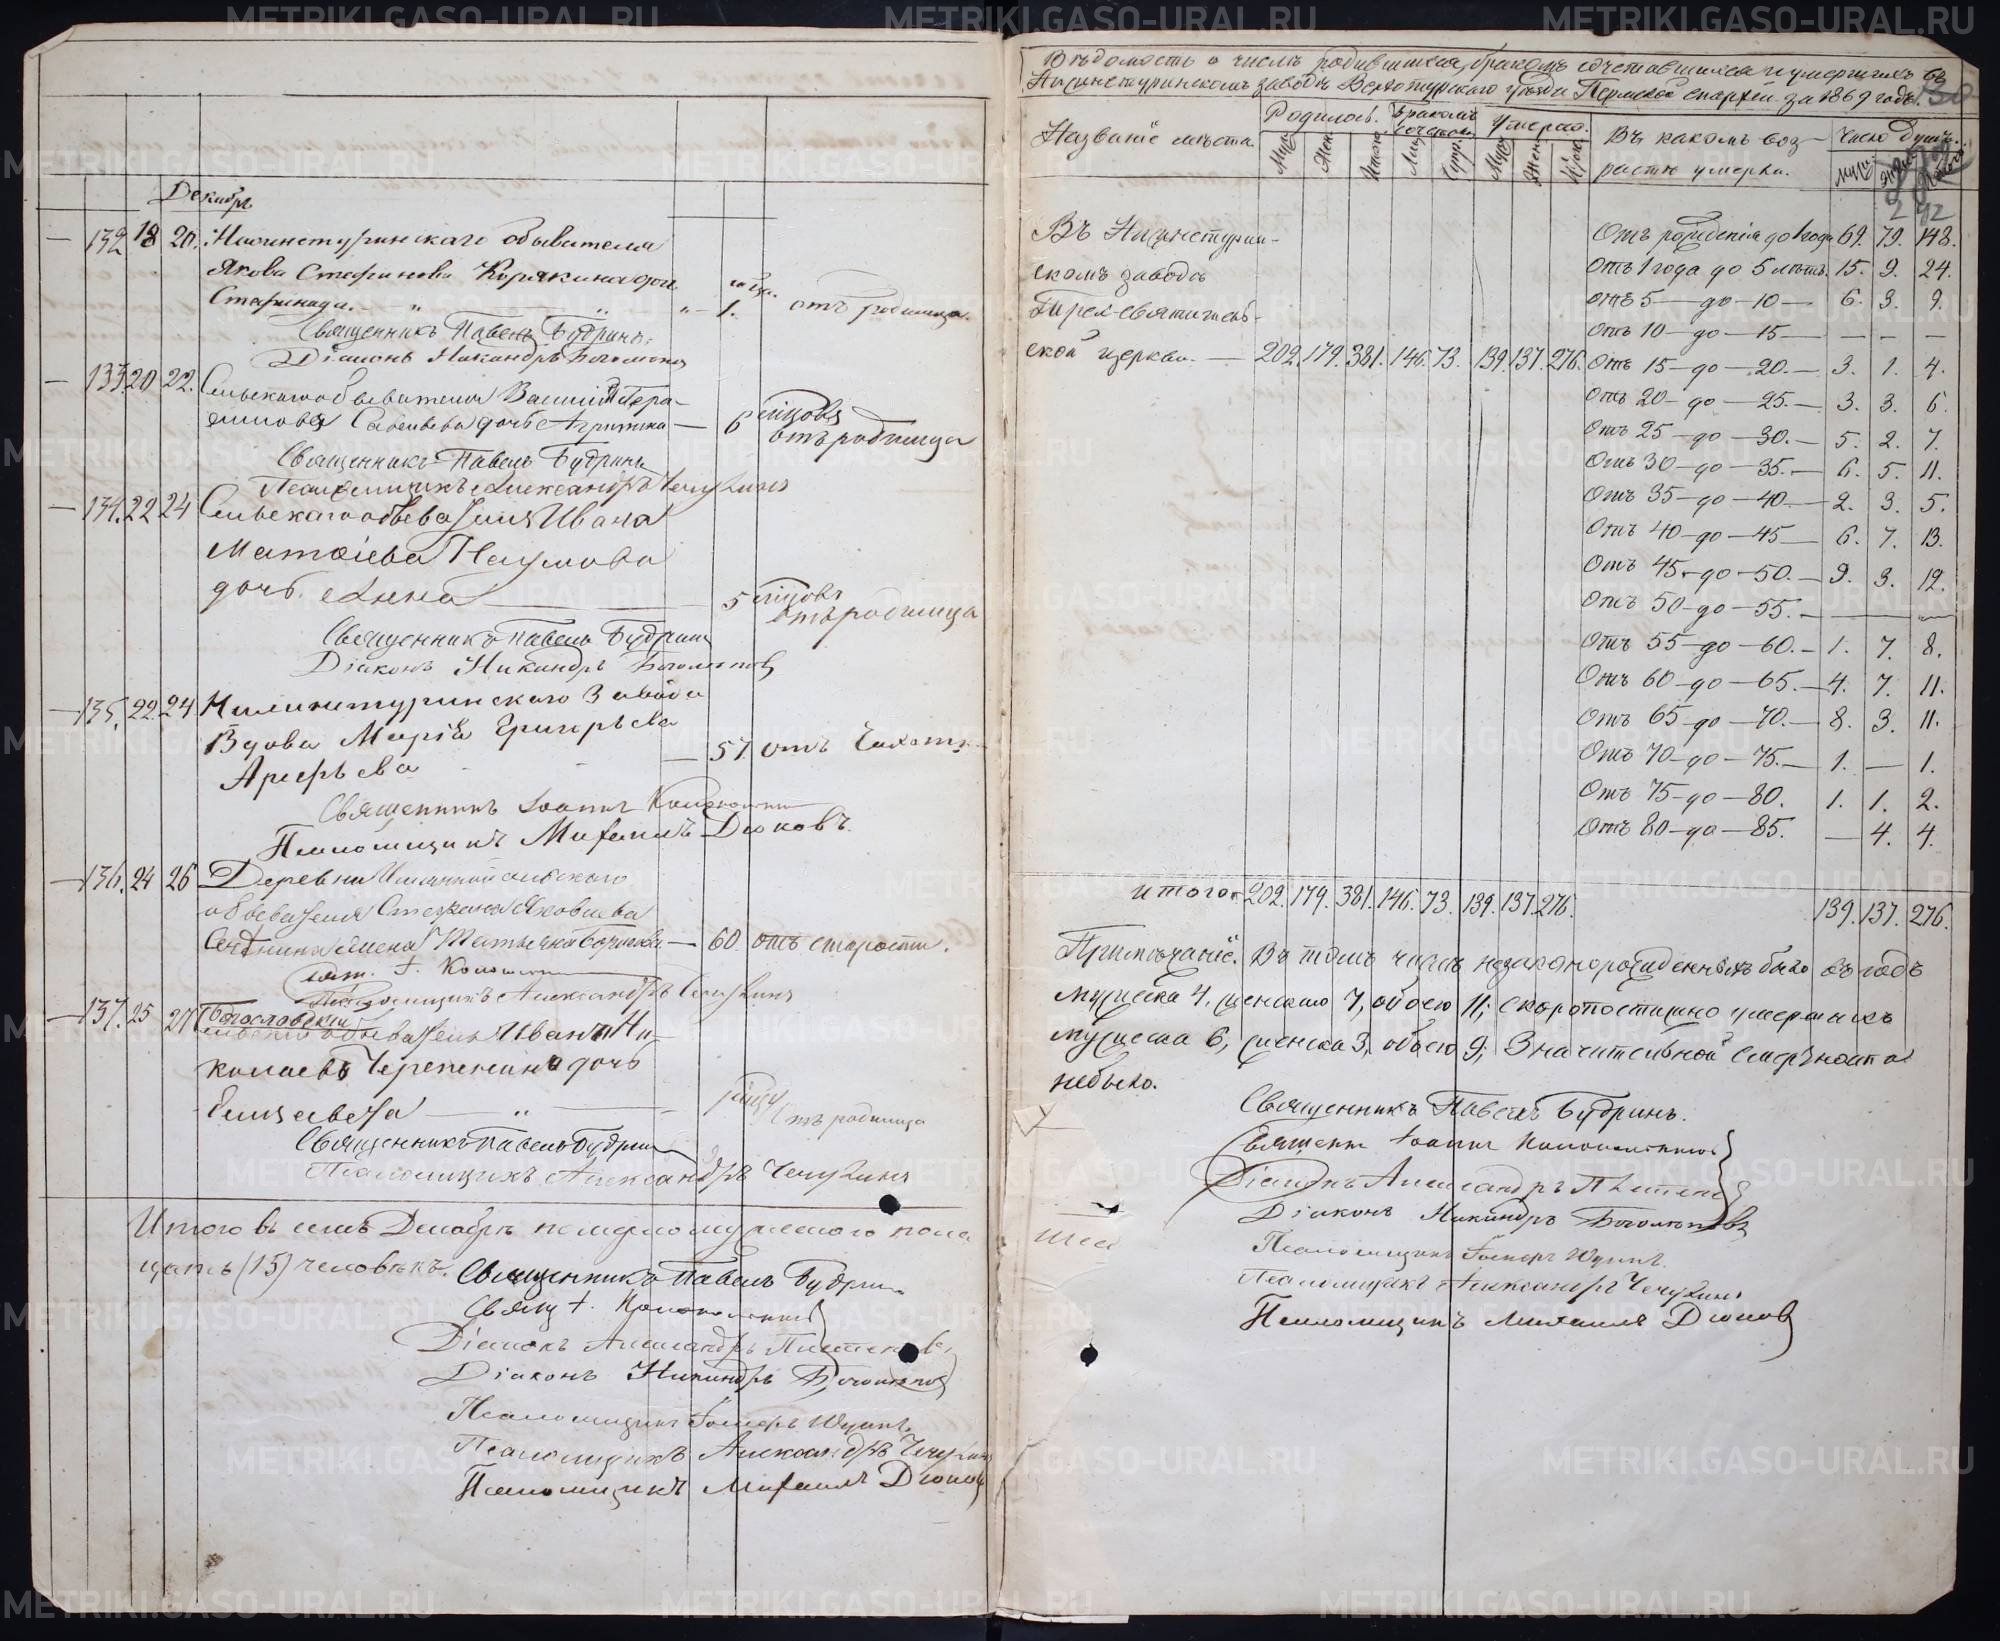 Декабрь
132 18 20. Нижнетуринскаго обывателя
Якова Стефанова Корякина дочь
Стефанида. — " — " — " — 1. мѣсца. отъ родимца.
Священникъ Павелъ Будринъ.
Діаконъ Никандръ Боголюповъ
133. 20 22. Сельскаго обывателя Василія Гера-
симова Савельева дочь Агрипина — 6 мѣсцовъ отъ родимца
Священникъ Павелъ Будринъ
Псаломщикъ Александръ Чечулинъ
134. 22 24 Сельскаго обывателя Ивана
Матѳіева Наумова
дочь Анна — 5 мѣсцовъ отъ родимца
Священникъ Павелъ Будринъ
Діаконъ Никандръ Боголюповъ
135. 22. 24 Нижнетуринскаго Завода
Вдова Марія Григорьева
Арефьева — 57. отъ Чахотк.
Священникъ Іоаннъ
Псаломщикъ Михаилъ Дюковъ.
136. 24 26 Деревни сельскаго
обывателя Стефана Яковлева
жена Татьяна — 60 отъ старости.
Псаломщикъ Александръ Чечулинъ
137. 25 27 Богословскій
сельскій обыватель Иванъ Ни-
колаевъ Черепенинъ дочь
Елизавета — " — отъ родимца
Священникъ Павелъ Будринъ
Псаломщикъ Александръ Чечулинъ
Итого въ семъ Декабрѣ померло мужескаго пола
(15) человѣкъ. Священникъ Павелъ Будринъ.
Свящ І.
Діаконъ Александръ
Діаконъ Никандръ Боголюповъ
Псаломщикъ
Псаломщикъ Александръ Чечулинъ
Псаломщикъ Михаилъ Дюковъ
Вѣдомость о числѣ родившихся, бракомъ сочетавшихся и умершихъ въ
Нижнетуринскомъ заводѣ Верхотурскаго уѣзда Пермской епархіи за 1869 годъ.
Названіе мѣста. Родилось. Бракомъ сочетал. Умерло. Въ какомъ воз- Число душъ.
Муж. Жен. Итого Лиц. Супр. Муж. Жен. растѣ умерли. Муж. Жен.
Въ Нижнетурин-
скомъ заводѣ
Трех-святитель-
ской церкви. — 202. 179. 381. 146. 73. 139. 137. 276.
Отъ рожденія до 1 года 69. 79. 148.
Отъ 1 года до 5 лѣтъ. 15. 9. 24.
отъ 5 — до — 10 — 6. 3. 9.
отъ 10 — до — 15 — — — —
Отъ 15 — до — 20. — 3. 1. 4.
Отъ 20 — до — 25. — 3. 3. 6.
Отъ 25 — до — 30. — 5. 2. 7.
Отъ 30 — до — 35. — 6. 5. 11.
Отъ 35 — до — 40. — 2. 3. 5.
Отъ 40 — до — 45 — 6. 7. 13.
Отъ 45. — до — 50. — 9. 3. 12.
Отъ 50 — до — 55. — — —
Отъ 55 — до — 60. — 1. 7. 8.
Отъ 60 — до — 65. — 4. 7. 11.
Отъ 65 — до — 70. — 8. 3. 11.
Отъ 70 — до — 75. — 1. — 1.
Отъ 75 — до — 80. 1. 1. 2.
Отъ 80 — до — 85. — 4. 4.
Итого. 202. 179. 381. 146. 73. 139. 137. 276. 139. 137. 276.
Примѣчаніе. Въ томъ числѣ незаконорожденныхъ было въ годъ
мужеска 4, женскаго 7, обоего 11; скоропостижно умершихъ
мужеска 6, женска 3, обоего 9; Значительной смертности
небыло.
Священникъ Павелъ Будринъ.
Священ Іоаннъ
Діаконъ Александръ
Діаконъ Никандръ Боголюповъ
Псаломщикъ
Псаломщикъ Александръ Чечулинъ
Псаломщикъ Михаилъ Дюковъ
METRIKI.GASO-URAL.RU